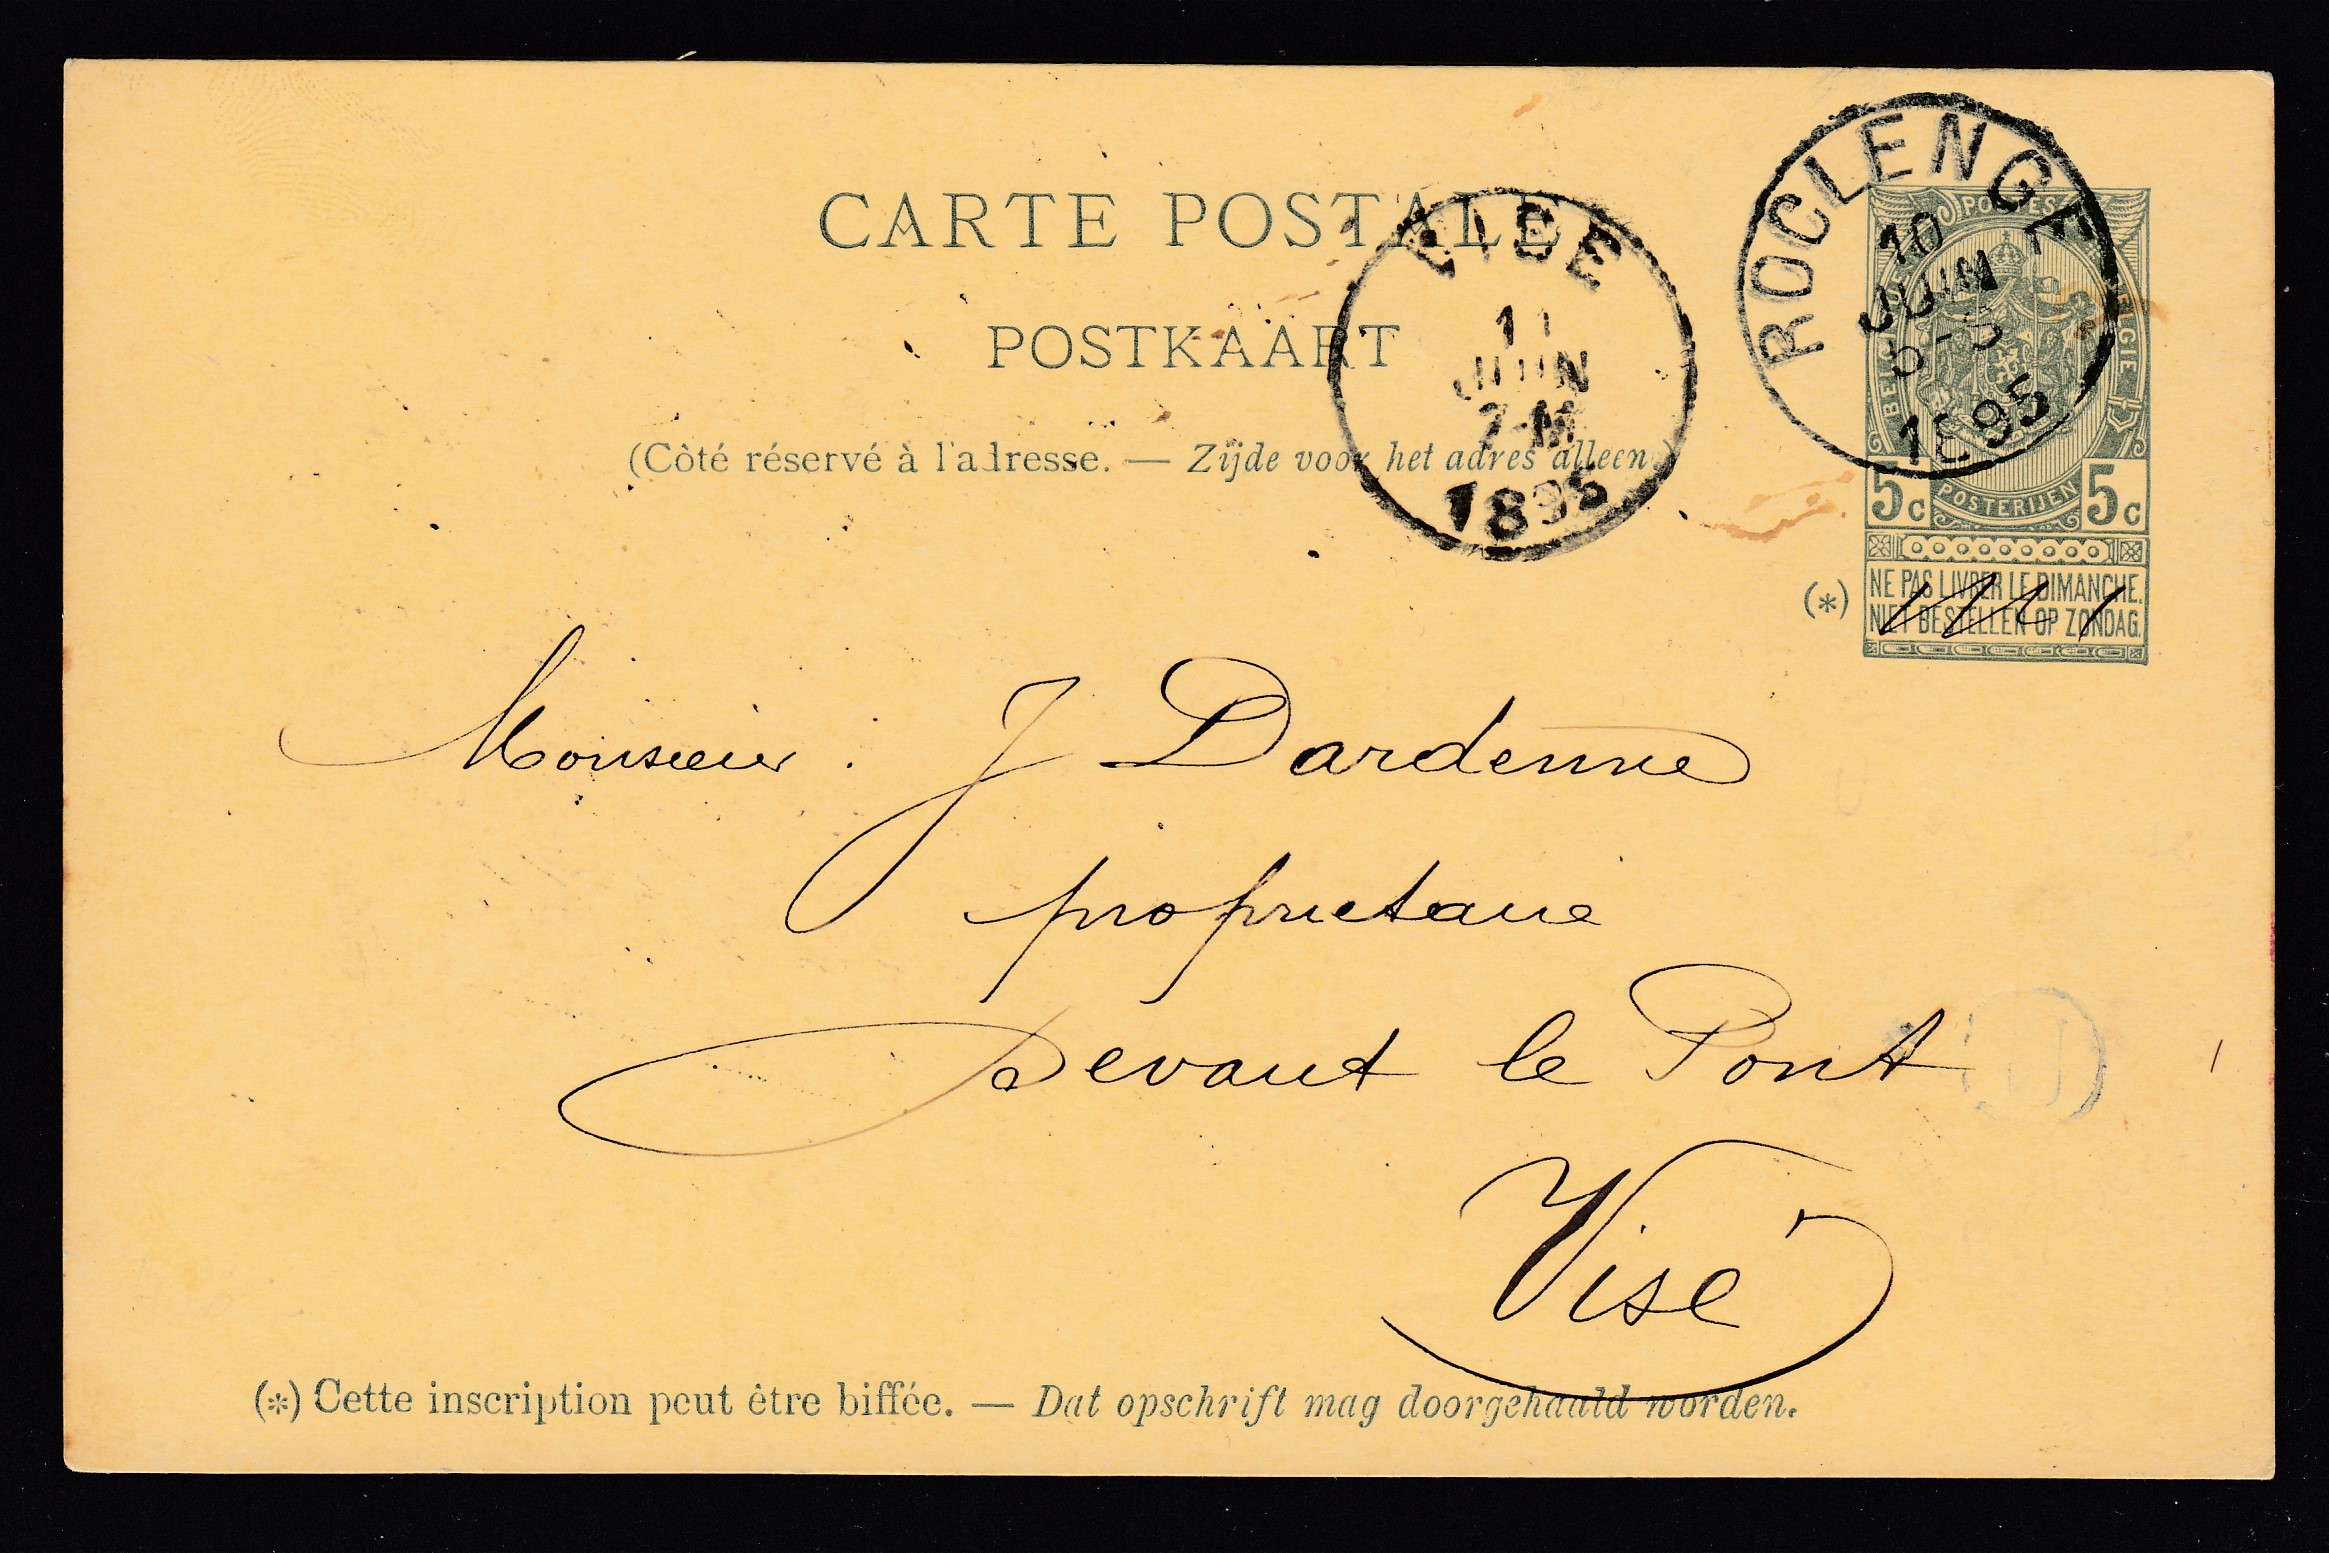 CARTE POSTALE
POSTKAART
(Côté réservé à l'adresse. — Zijde voor het adres alleen.)
VISE
11
JUIN
7-M
1895
ROCLENGE
10
JUIN
5-S
1895
POSTES
BELGIE
5c POSTERIJEN 5c
(*) NE PAS LIVRER LE DIMANCHE.
NIET BESTELLEN OP ZONDAG.
Monsieur. J Dardenne
proprietaire
Devant le Pont
Visé
(*) Cette inscription peut être biffée. — Dat opschrift mag doorgehaald worden.